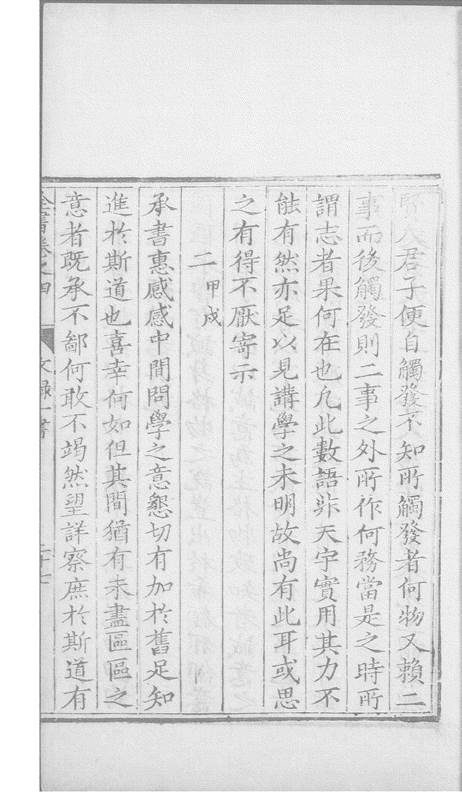 即人君子便自觸發不知所觸發者何物又賴二
事而後觸發則二事之外所作何務當是之時所
謂志者果何在也凡此數語非天宇實用其力不
能有然亦足以見講學之未明故尚有此耳或思
之有得不厭寄示
二甲戌
承書惠感感中間問學之意懇切有加於舊足知
進於斯道也喜幸何如但其間猶有未盡區區之
意者既承不鄙何敢不竭然望詳察庶於斯道有
全書卷之四 文錄一書